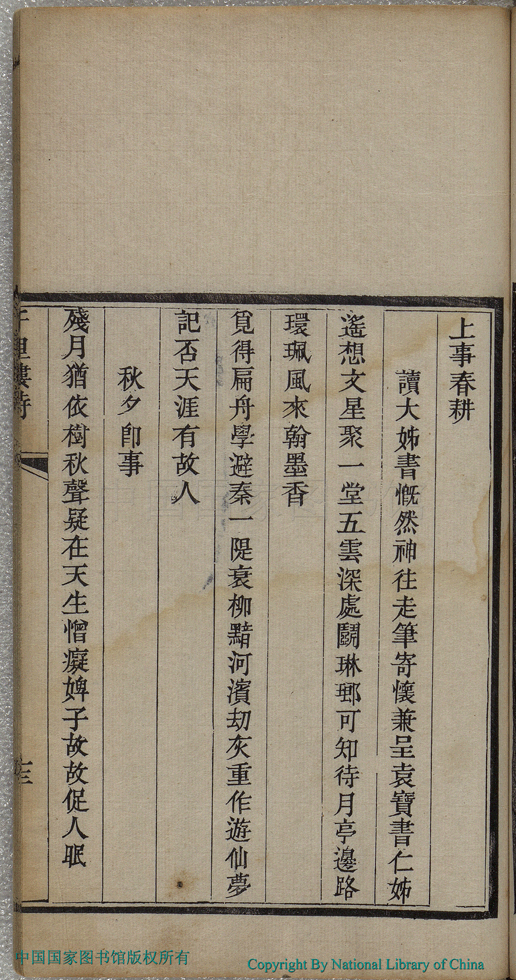 上事春耕
讀大姊書慨然神往走筆寄懷兼呈袁寶書仁姊
遙想文星聚一堂五雲深處鬭琳瑯可知待月亭邊路
環珮風來翰墨香
覓得扁舟學避秦一隄衰柳黯河濱劫灰重作遊仙夢
記否天涯有故人
秋夕卽事
殘月猶依樹秋聲疑在天生憎癡婢子故故促人眠
十三
中国国家图书馆版权所有
Copyright By National Library of China